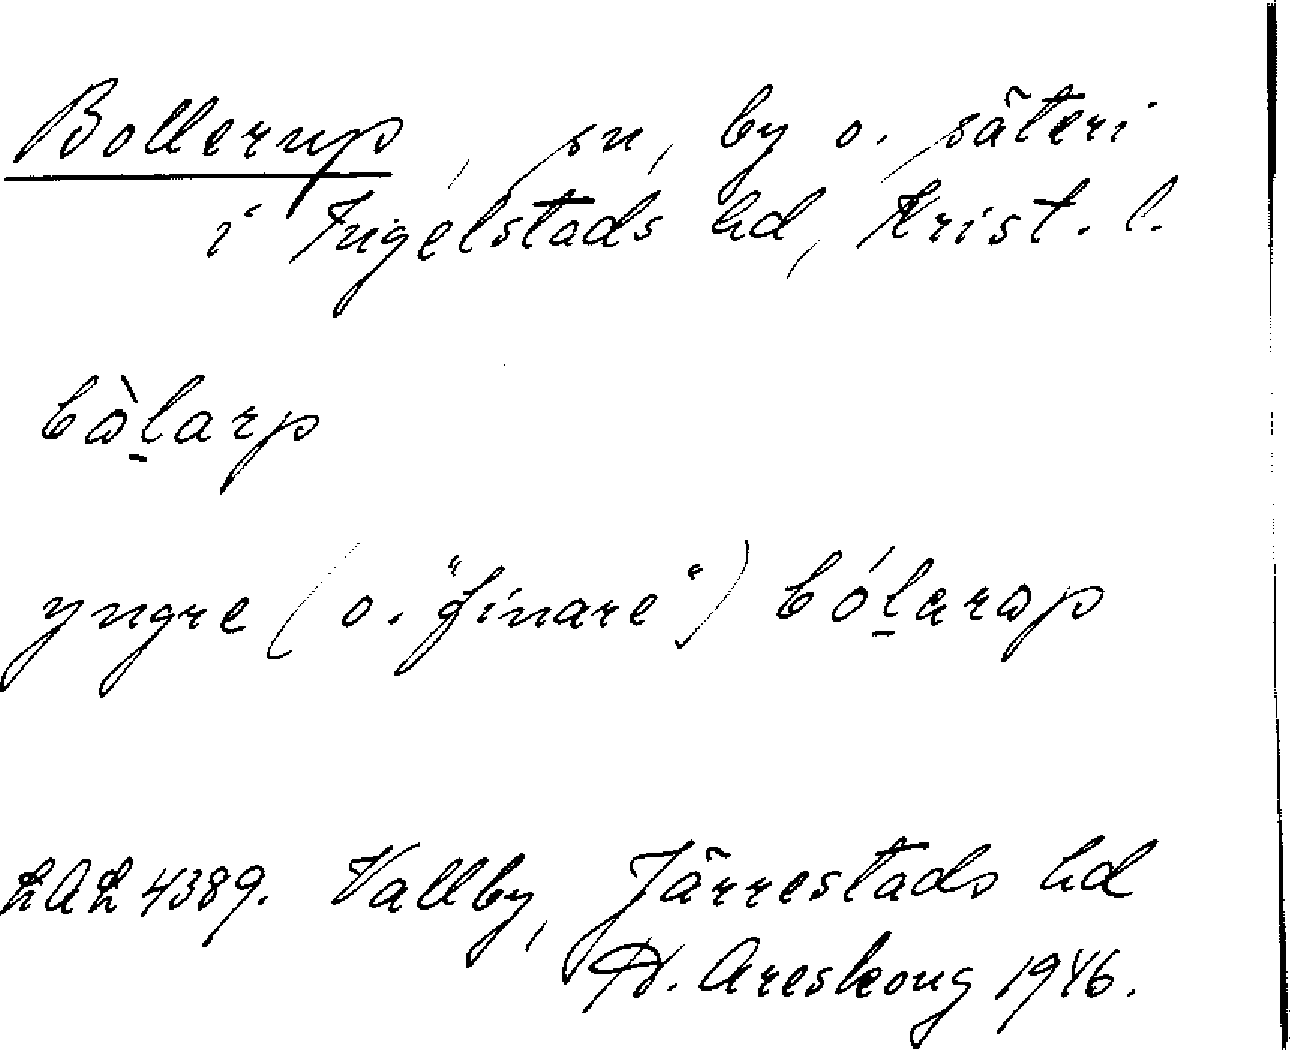 Bollerup, sn, by o. säteri
i Ingelstads hd, Krist. l.
bòl̠arp
yngre (o. "finare") ból̠arap
LAL 4389. Vallby, Järrestads hd
H. Areskoug 1946.